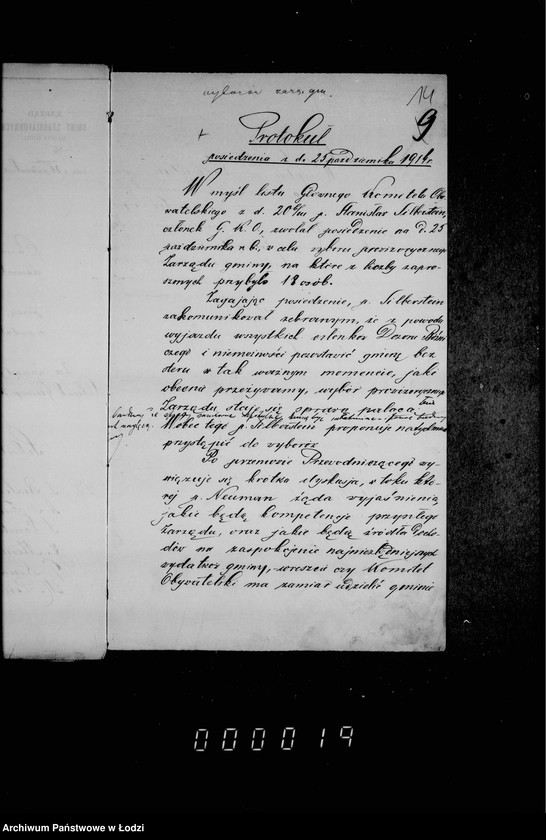 wybór zarz. gm.
14
9
Protokuł
posiedzenia z d. 25 października 1914 r.
W myśl listu Głównego Komitetu Oby-
watelskiego z d. 20 p. Stanisław Silberstein,
członek G. K. O, zwołał posiedzenie na d. 25
października r. b. w celu wyboru prowizorycznego
Zarządu gminy, na które z liczby zapro-
szonych przybyło 18 osób.
Zagajając posiedzenie, p. Silberstein
zakomunikował zebranym, że z powodu
wyjazdu wszystkich członków Dozoru Bóżni-
czego i niemożności pozostawić gminę bez
steru w tak ważnym momencie, jaki
obecnie przeżywamy, wybór prowizorycznego
Zarządu staje się sprawą palącą
Wobec tego p. Silberstein proponuje natychmiast
przystąpić do wyborów
Po przemowie Przewodniczącego wy-
wiązuje się krótka dyskusja, w toku któ-
rej p. Neuman żąda wyjaśnienia,
jakie będą kompetencje przyszłego
Zarządu, oraz jakie będą źródła docho-
dów na zaspokojenie najniezbędniejszych
wydatków gminy, wreszcie czy Komitet
Obywatelski ma zamiar udzielić gminie
0000019
Archiwum Państwowe w Łodzi